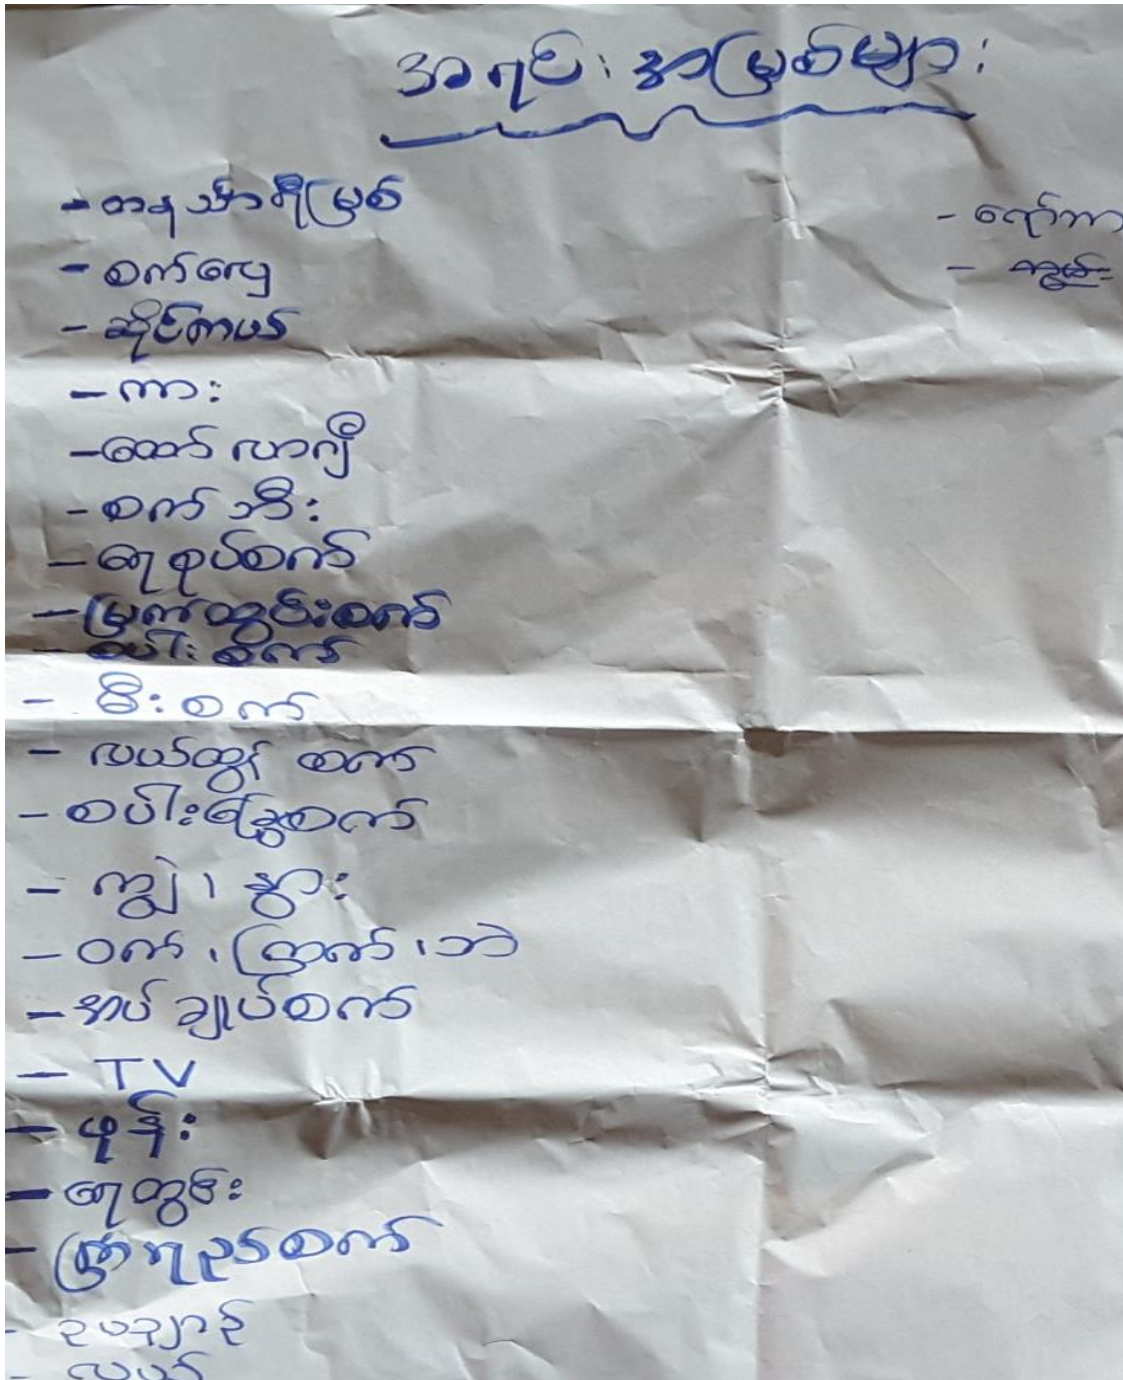 အရင်းအမြစ်များ
- တနင်္သာရီမြစ်
- စက်လှေ
- ဆိုင်ကယ်
- ကား
- ထော်လာဂျီ
- စက်ဘီး
- ရေစုပ်စက်
- မြက်ထွင်းစက်
- စပါးစက်
- မီးစက်
- လယ်ထွန်စက်
- စပါးခြွေစက်
- ကျွဲ၊ နွား
- ဝက်၊ ကြက်၊ ဘဲ
- အပ်ချုပ်စက်
- TV
- ဖုန်း
- ရေတွင်း
- ကြံရည်စက်
- ဥယျာဉ်
- လယ်
- ရော်ဘာ
- ကွမ်း